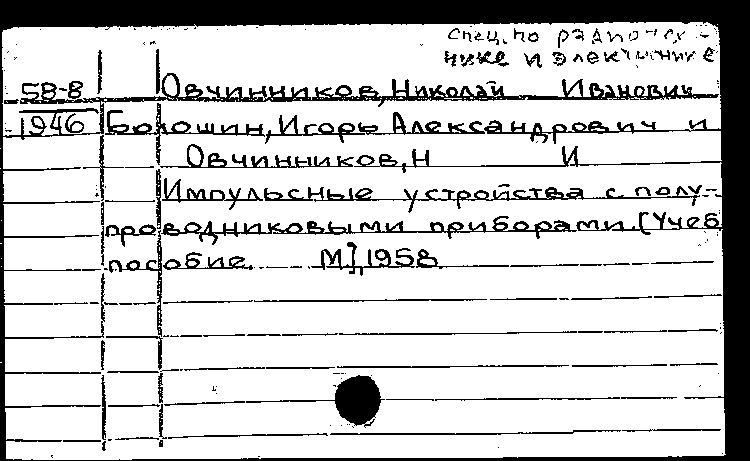 Спец. по радиотех-
нике и электронике
58-8 Овчинников, Николай Иванович
1946 Болошин, Игорь Александрович и
Овчинников, Н И
Импульсные устройства с полу-
проводниковыми приборами. [Учеб
пособие. М], 1958